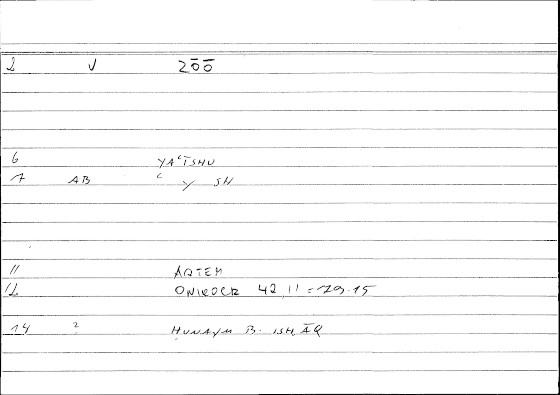 2 V 200
6 YAʿĪSHU
7 AB ʿ Y SH
11 ARTEM
12 ONIROCR 42,11 = 79.15
14 ? ḤUNAYN B. ISḤĀQ